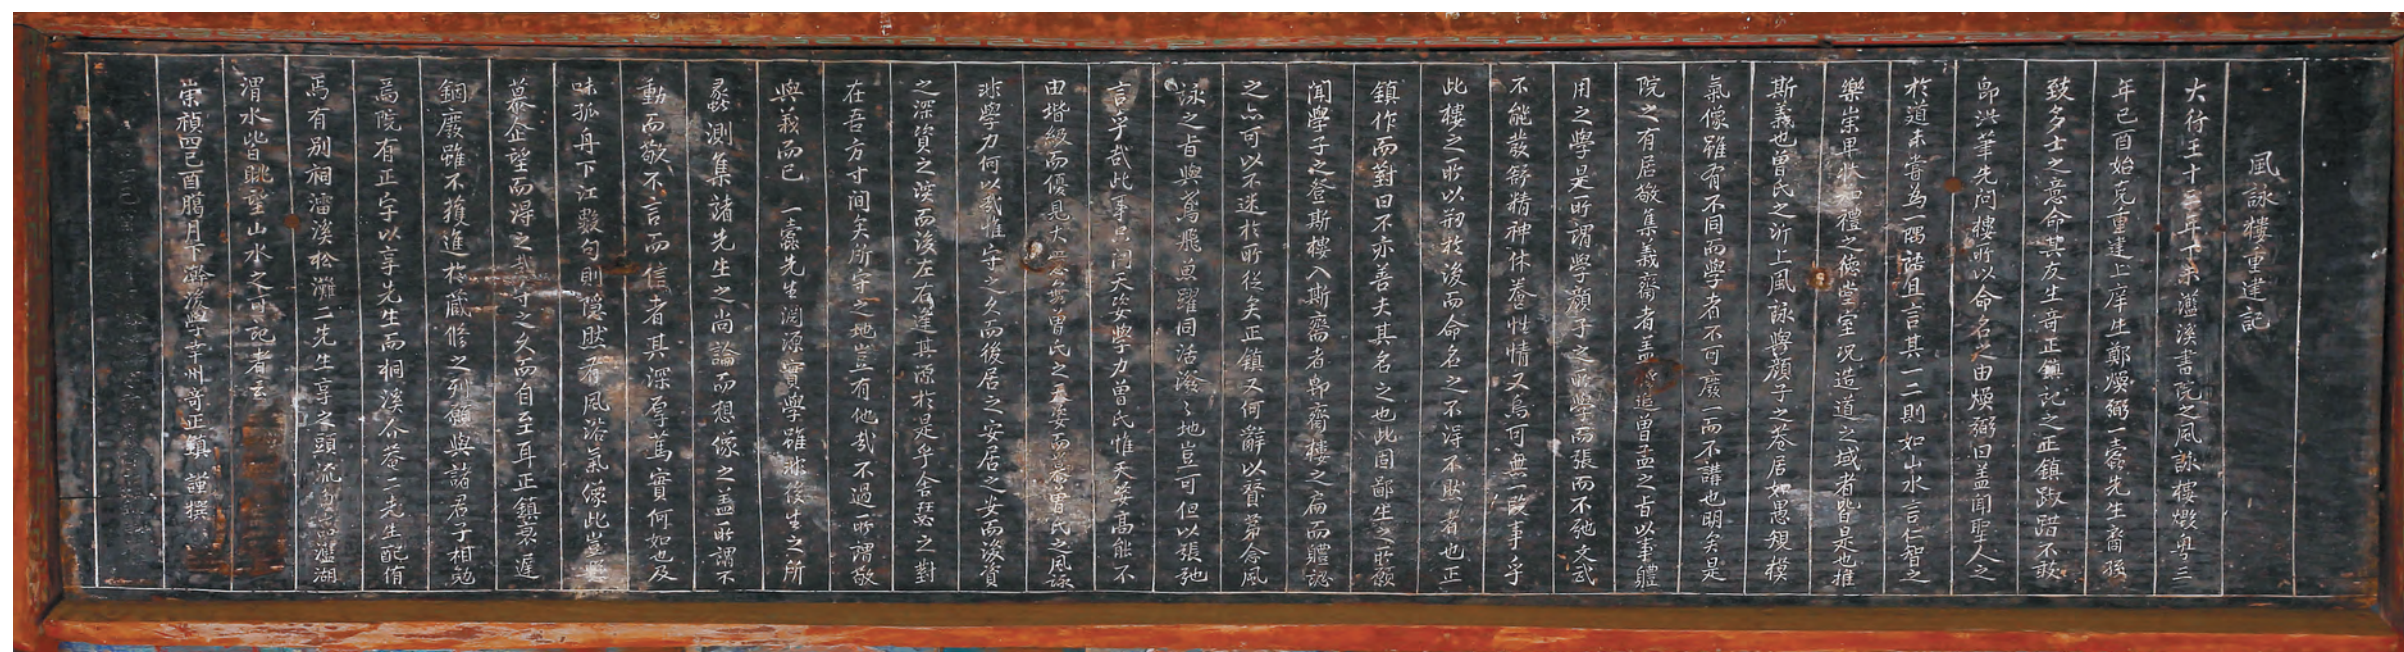 風詠樓重建記
大行王十三年丁未灆溪書院之風詠樓燬粤三
年己酉始克重建上庠生鄭煥弼一蠹先生裔孫
致多士之意命其友生奇正鎮記之正鎮踧踖不敢
卽洪筆先問樓所以命名之由煥弼曰盖聞聖人之
於道未嘗爲一隅話且言其一二則如山水言仁智之
樂崇卑狀知禮之德堂室况造道之域者皆是也推
斯義也曾氏之沂上風詠與顏子之巷居如愚規模
氣像雖有不同而學者不可廢一而不講也明矣是
院之有居敬集義齋者盖追曾孟之旨以事軆
用之學是所謂學顏子之所學而張而不弛文武
不能發舒精神休養性情又烏可無一段事乎
此樓之所以刱於後而命名之不得不然者也正
鎮作而對曰不亦善夫其名之也此固鄙生之所願
聞學子之登斯樓入斯齋者卽齋樓之扁而軆認
之亦可以不迷於所從矣正鎮又何辭以贅第念風
詠之旨與鳶飛魚躍同活潑〻地豈可但以張弛
言乎哉此事只問天姿學力曾氏惟天姿高能不
由堦級而優見大意無曾氏之天姿而慕曾氏之風詠
非學力何以哉惟守之久而後居之安居之安而後資
之深資之深而後左右逢其源於是乎舍瑟之對
在吾方寸间矣所守之地豈有他哉不過所謂敬
與義而已 一蠹先生淵源實學雖非後生之所
蠡測集諸先生之尚論而想像之盖所謂不
動而敬不言而信者其深厚篤實何如也及
味孤舟下江數句則隠然有風浴氣像此豈懸
慕企望而得之哉守之久而自至耳正鎮衰遲
錮廢雖不獲進於藏修之列願與諸君子相勉
焉院有正宇以享先生而桐溪介菴二先生配侑
焉有別祠濡溪松灘二先生享之頭流灆湖
渭水皆眺望山水之可記者云
崇禎四己酉臈月下澣後學幸州奇正鎮 謹撰